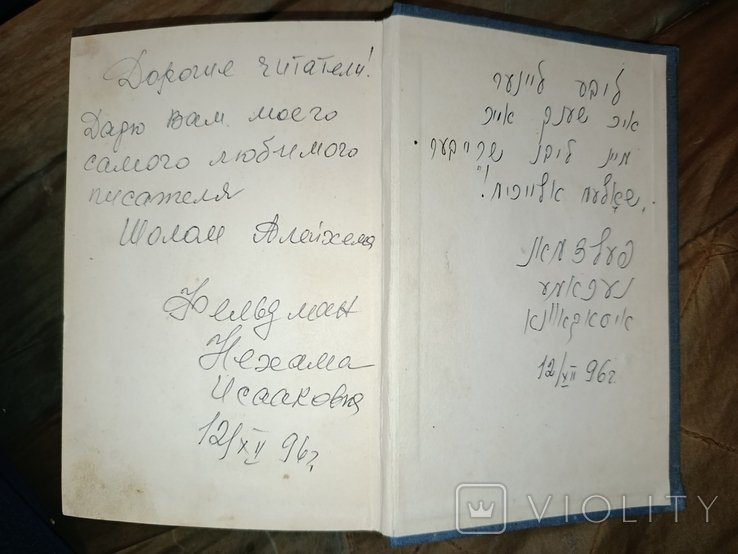 Дорогие читатели!
Дарю вам моего
самого любимого
писателя
Шолом Алейхема
Фельдман
Нехама
Исааковна
12/XII 96г
ליבע לייענער
איך שענק אייך
מיין ליבן שרייבער
"שאלעם אלייכעם!
פעלדמאן
נעכאמע
איסאקאוונא
12/XII 96г.
VIOLITY